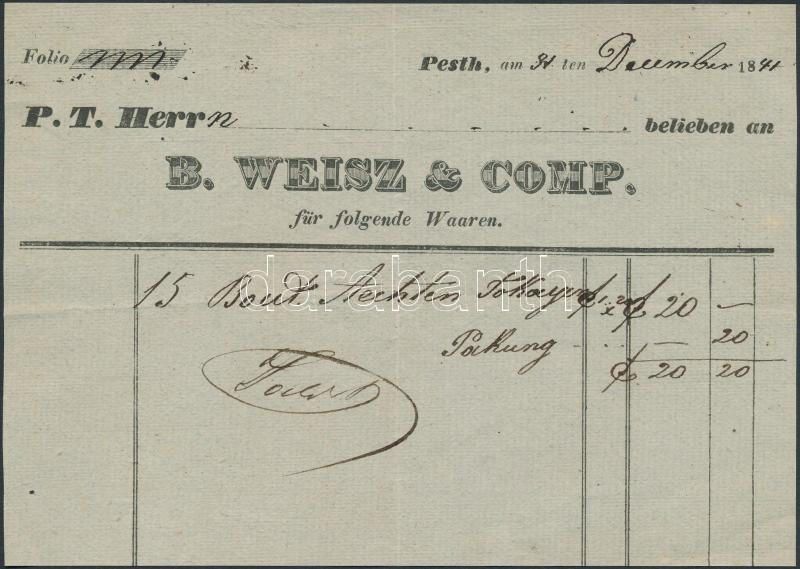 Folio
Pesth, am 31 ten December 1841
P. T. Herrn belieben an
B. WEISZ & COMP.
für folgende Waaren.
15 Bout. Aechten Tokayer 1 x 20 20 —
Pakung — 20
20 20
darabanth